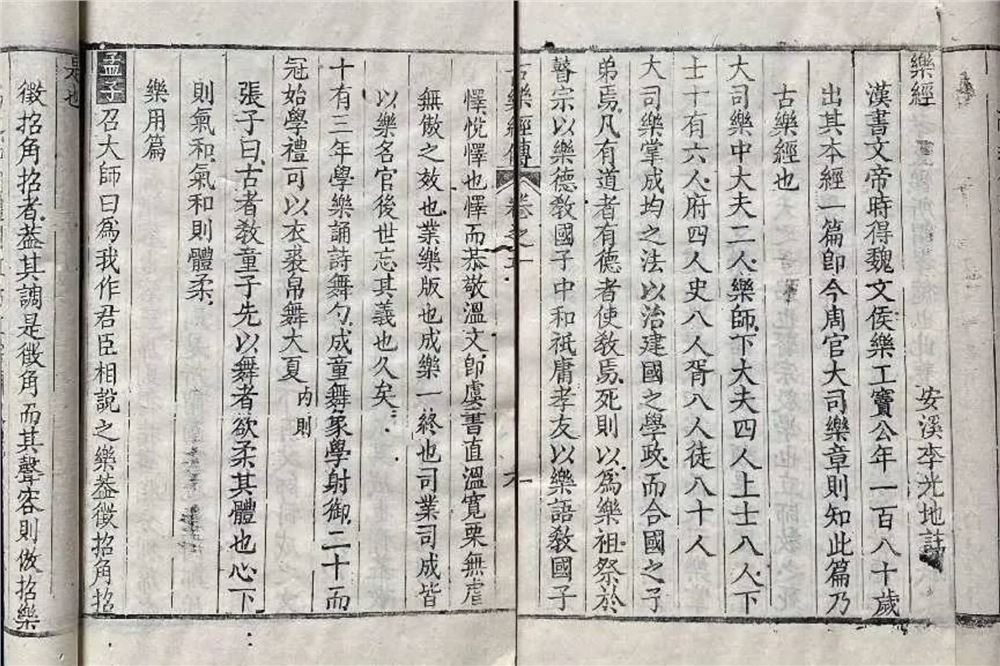 樂經
安溪李光地註
漢書文帝時得魏文侯樂工竇公年一百八十歲
出其本經一篇卽今周官大司樂章則知此篇乃
古樂經也
大司樂中大夫二人樂師下大夫四人上士八人下
士十有六人府四人史八人胥八人徒八十人
大司樂掌成均之法以治建國之學政而合國之子
弟焉凡有道者有德者使敎焉死則以爲樂祖祭於
瞽宗以樂德敎國子中和祇庸孝友以樂語敎國子
古樂經傳 卷之
懌悅懌也懌而恭敬溫文卽虞書直溫寬栗無虐
無傲之效也業樂版也成樂一終也司業司成皆
以樂名官後世忘其義也久矣
十有三年學樂誦詩舞勺成童舞象學射御二十而
冠始學禮可以衣裘帛舞大夏內則
張子曰古者敎童子先以舞者欲柔其體也心下
則氣和氣和則體柔
樂用篇
孟子召大師曰爲我作君臣相說之樂葢徵招角招
是也
徵招角招者葢其調是徵角而其聲容則倣招樂